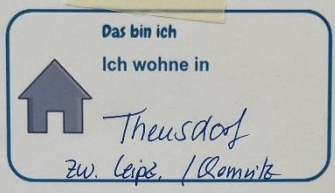 Das bin ich
Ich wohne in
Theusdorf
zw. Leipz. / Chemnitz